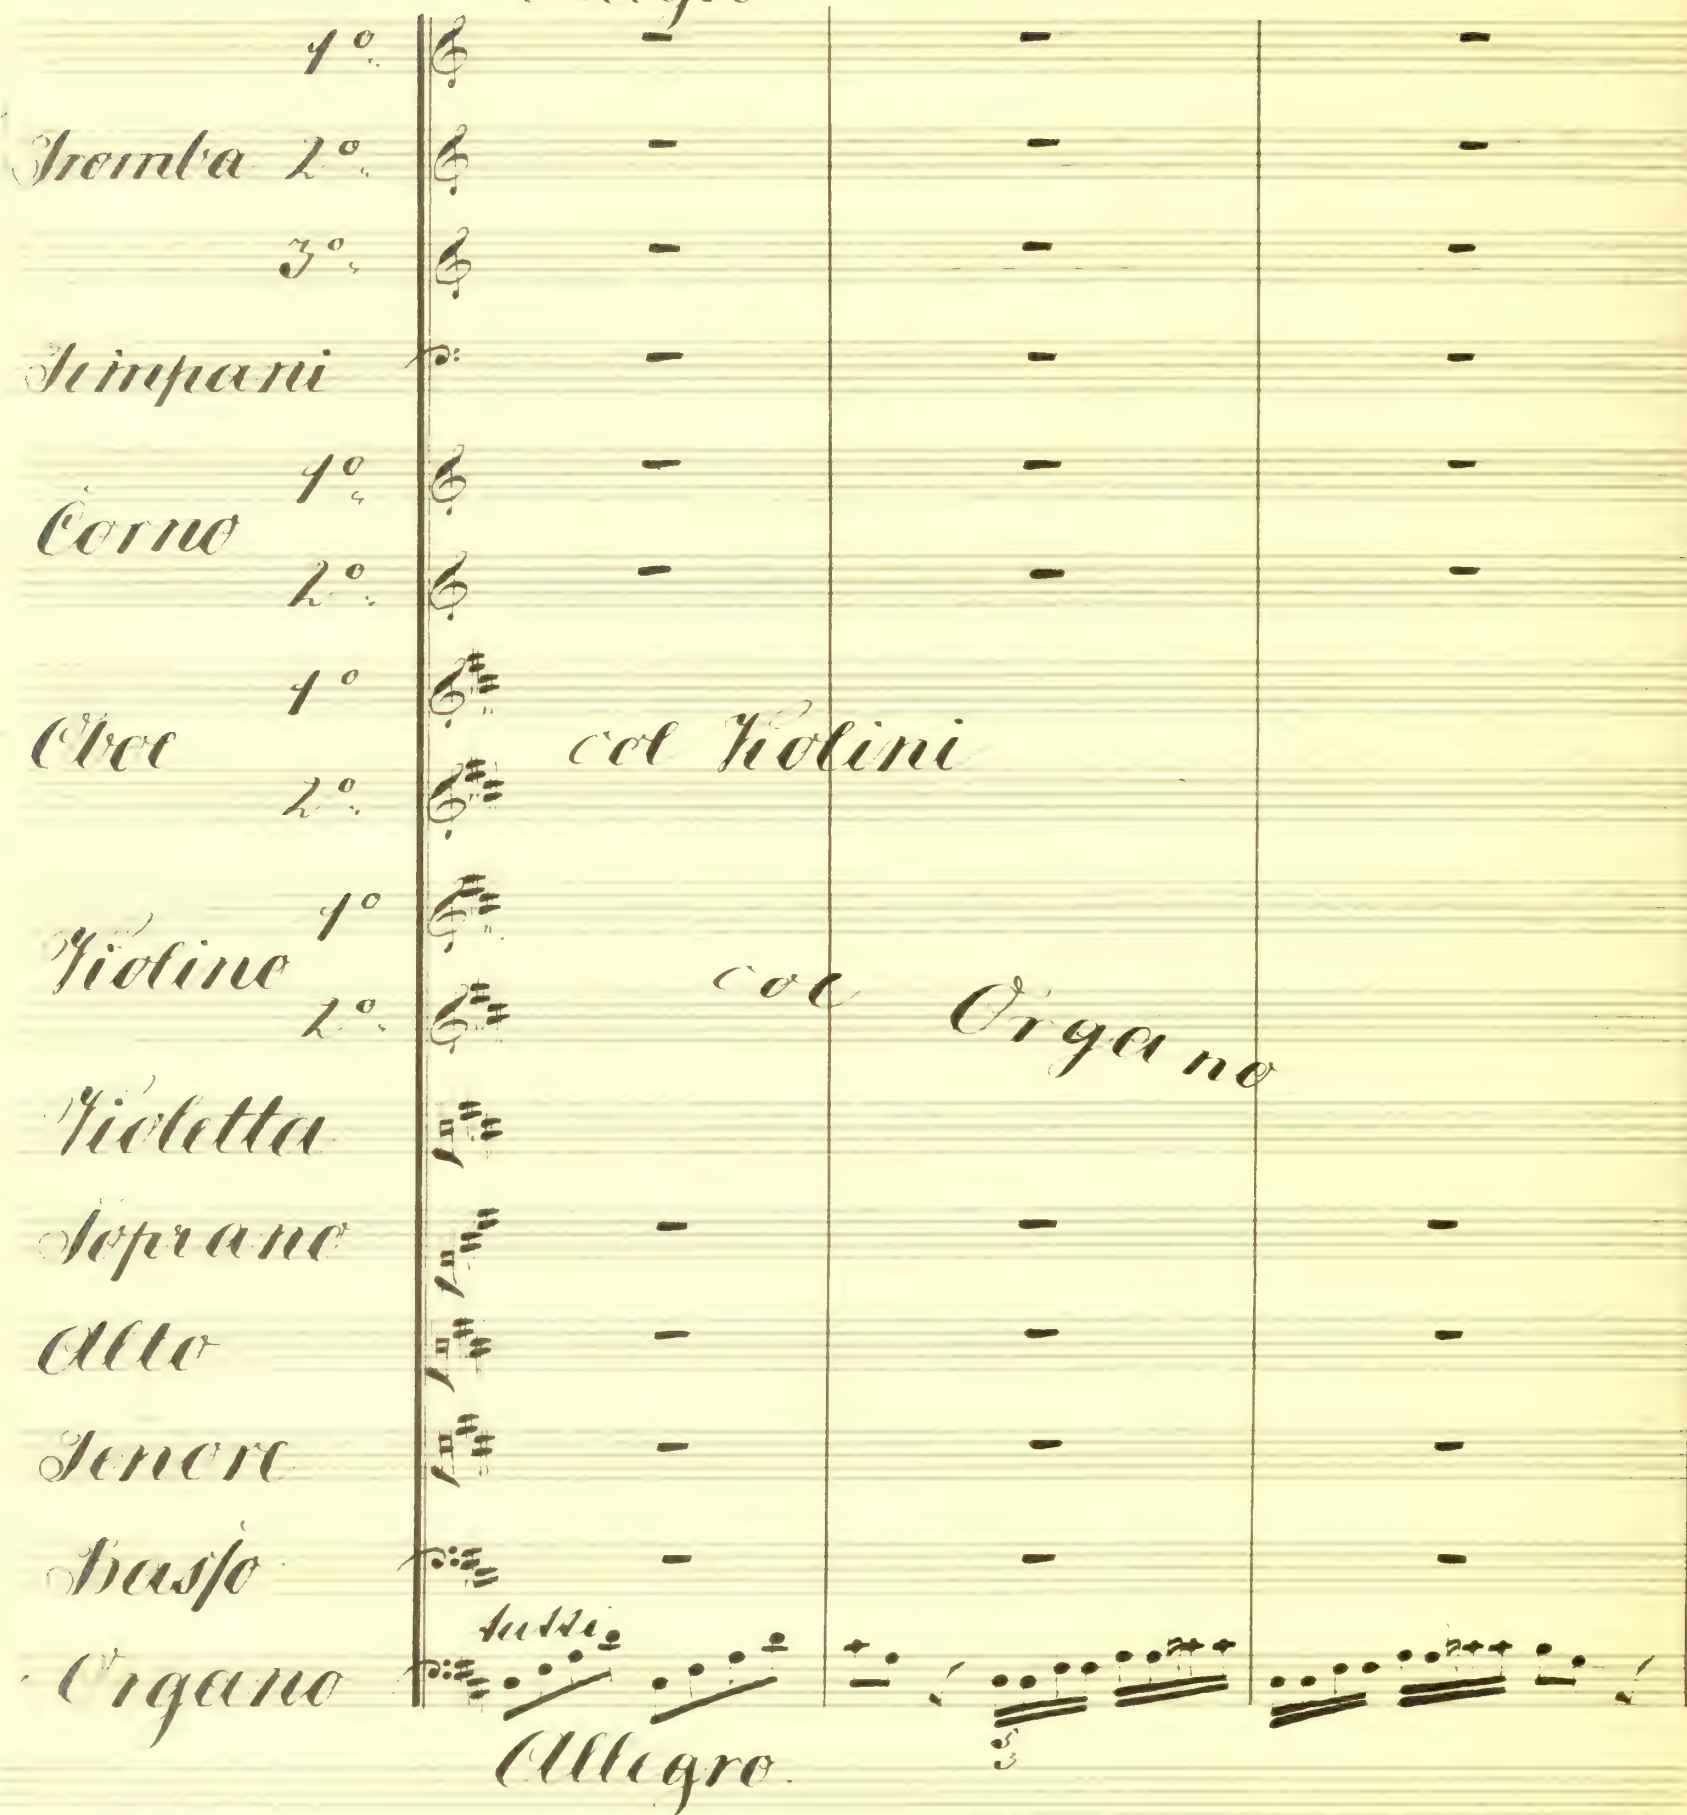 Allegro
1º
Tromba 2º
3º
Timpani
1º
Corno
2º
1º
Oboe col Violini
2º
1º
Violino
2º
col Organo
Violetta
Soprano
Alto
Tenore
Basso
tutti
Organo
5
3
Allegro.